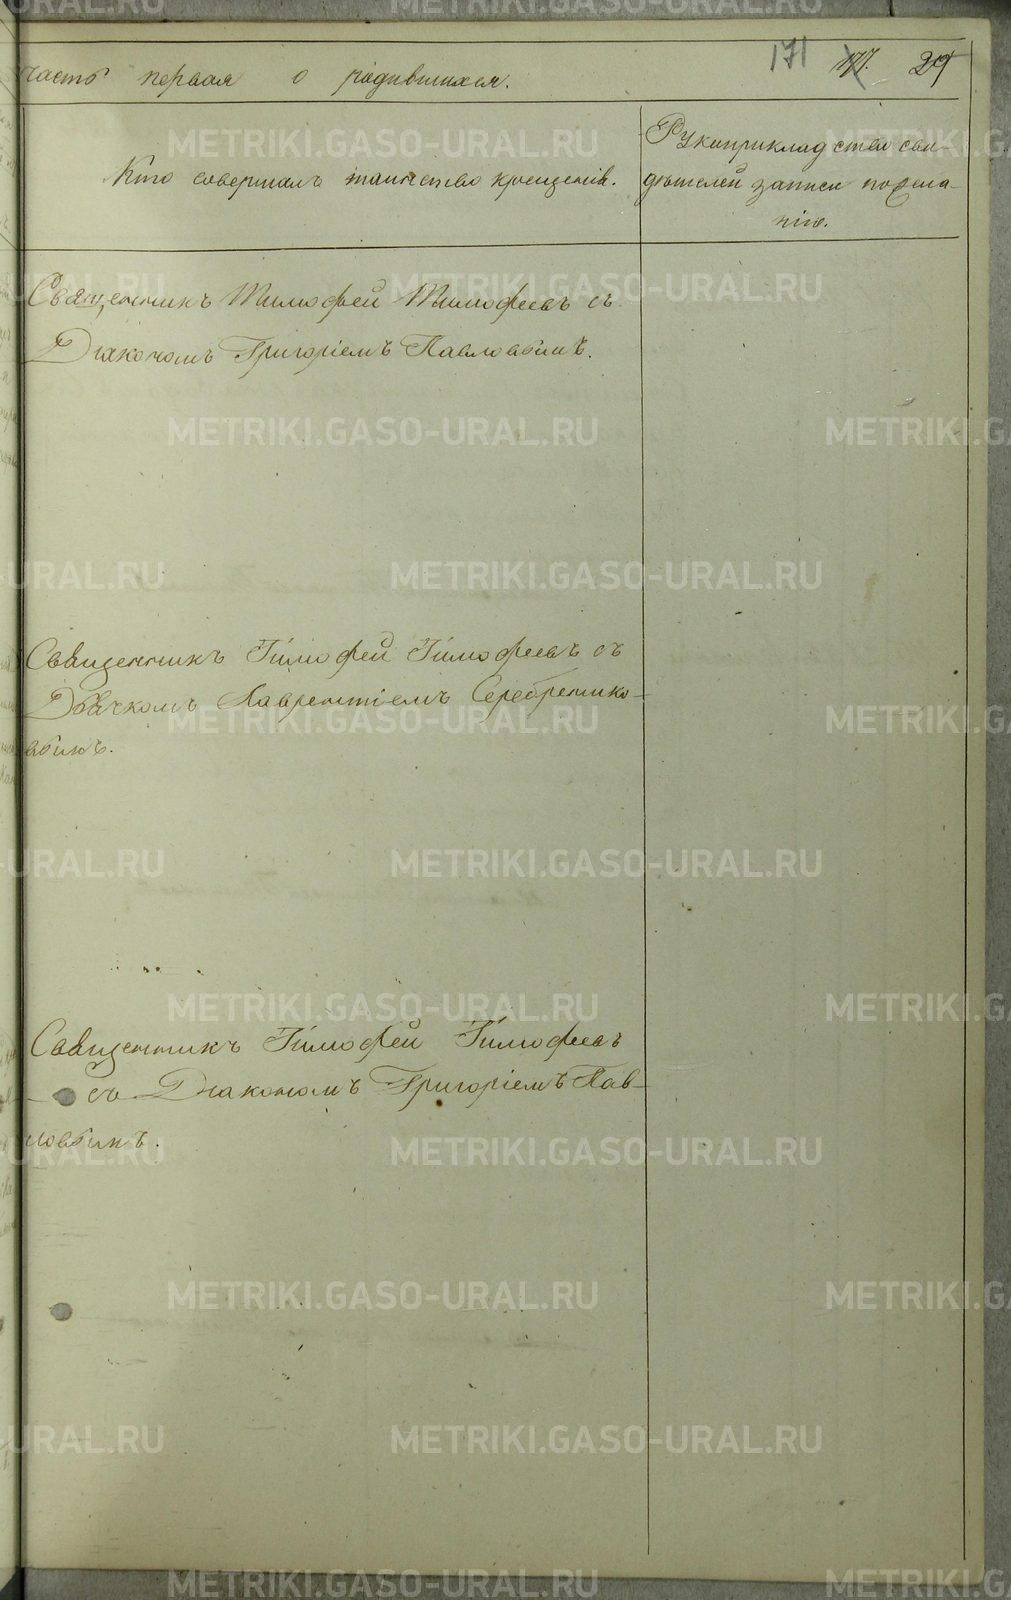 171 177. 29
часть первая о родившихся.
Кто совершалъ таинство крещенія.
Рукоприкладство сви-
дѣтелей записи по жела-
нію.
Священникъ Тимофей Тимофеевъ съ
Діакономъ Григоріемъ Павловымъ.
Священникъ Тимофей Тимофеевъ съ
Дьячкомъ Лаврентіемъ Серебренико-
вымъ.
Священникъ Тимофей Тимофеевъ
съ Діакономъ Григоріемъ Пав-
ловымъ.
METRIKI.GASO-URAL.RU